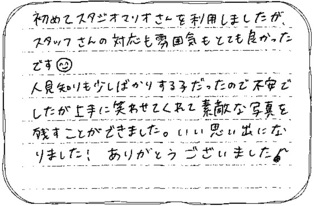 初めてスタジオマリオさんを利用しましたが、
スタッフさんの対応も雰囲気もとても良かった
です☺
人見知りも少しばかりする子だったので不安で
したが上手に笑わせてくれて素敵な写真を
残すことができました。いい思い出にな
りました! ありがとうございました♪